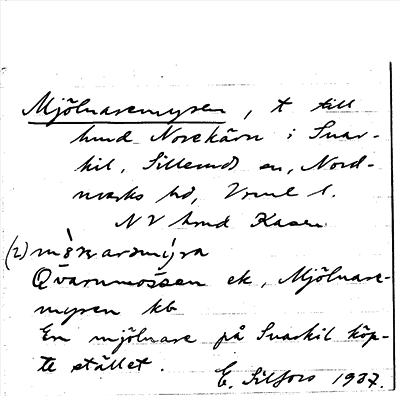 Mjölnaremyren, t till
hmd Norekärn i Svar-
kil, Sillerud sn, Nord-
marks hd, Vrml l.
NV hmd Kasen
(2) mö̀ɳarəmýra
Qvarnmossen ek, Mjölnare-
myren kb
En mjölnare på Svarkil köp-
te stället.
E. Silfors 1937.